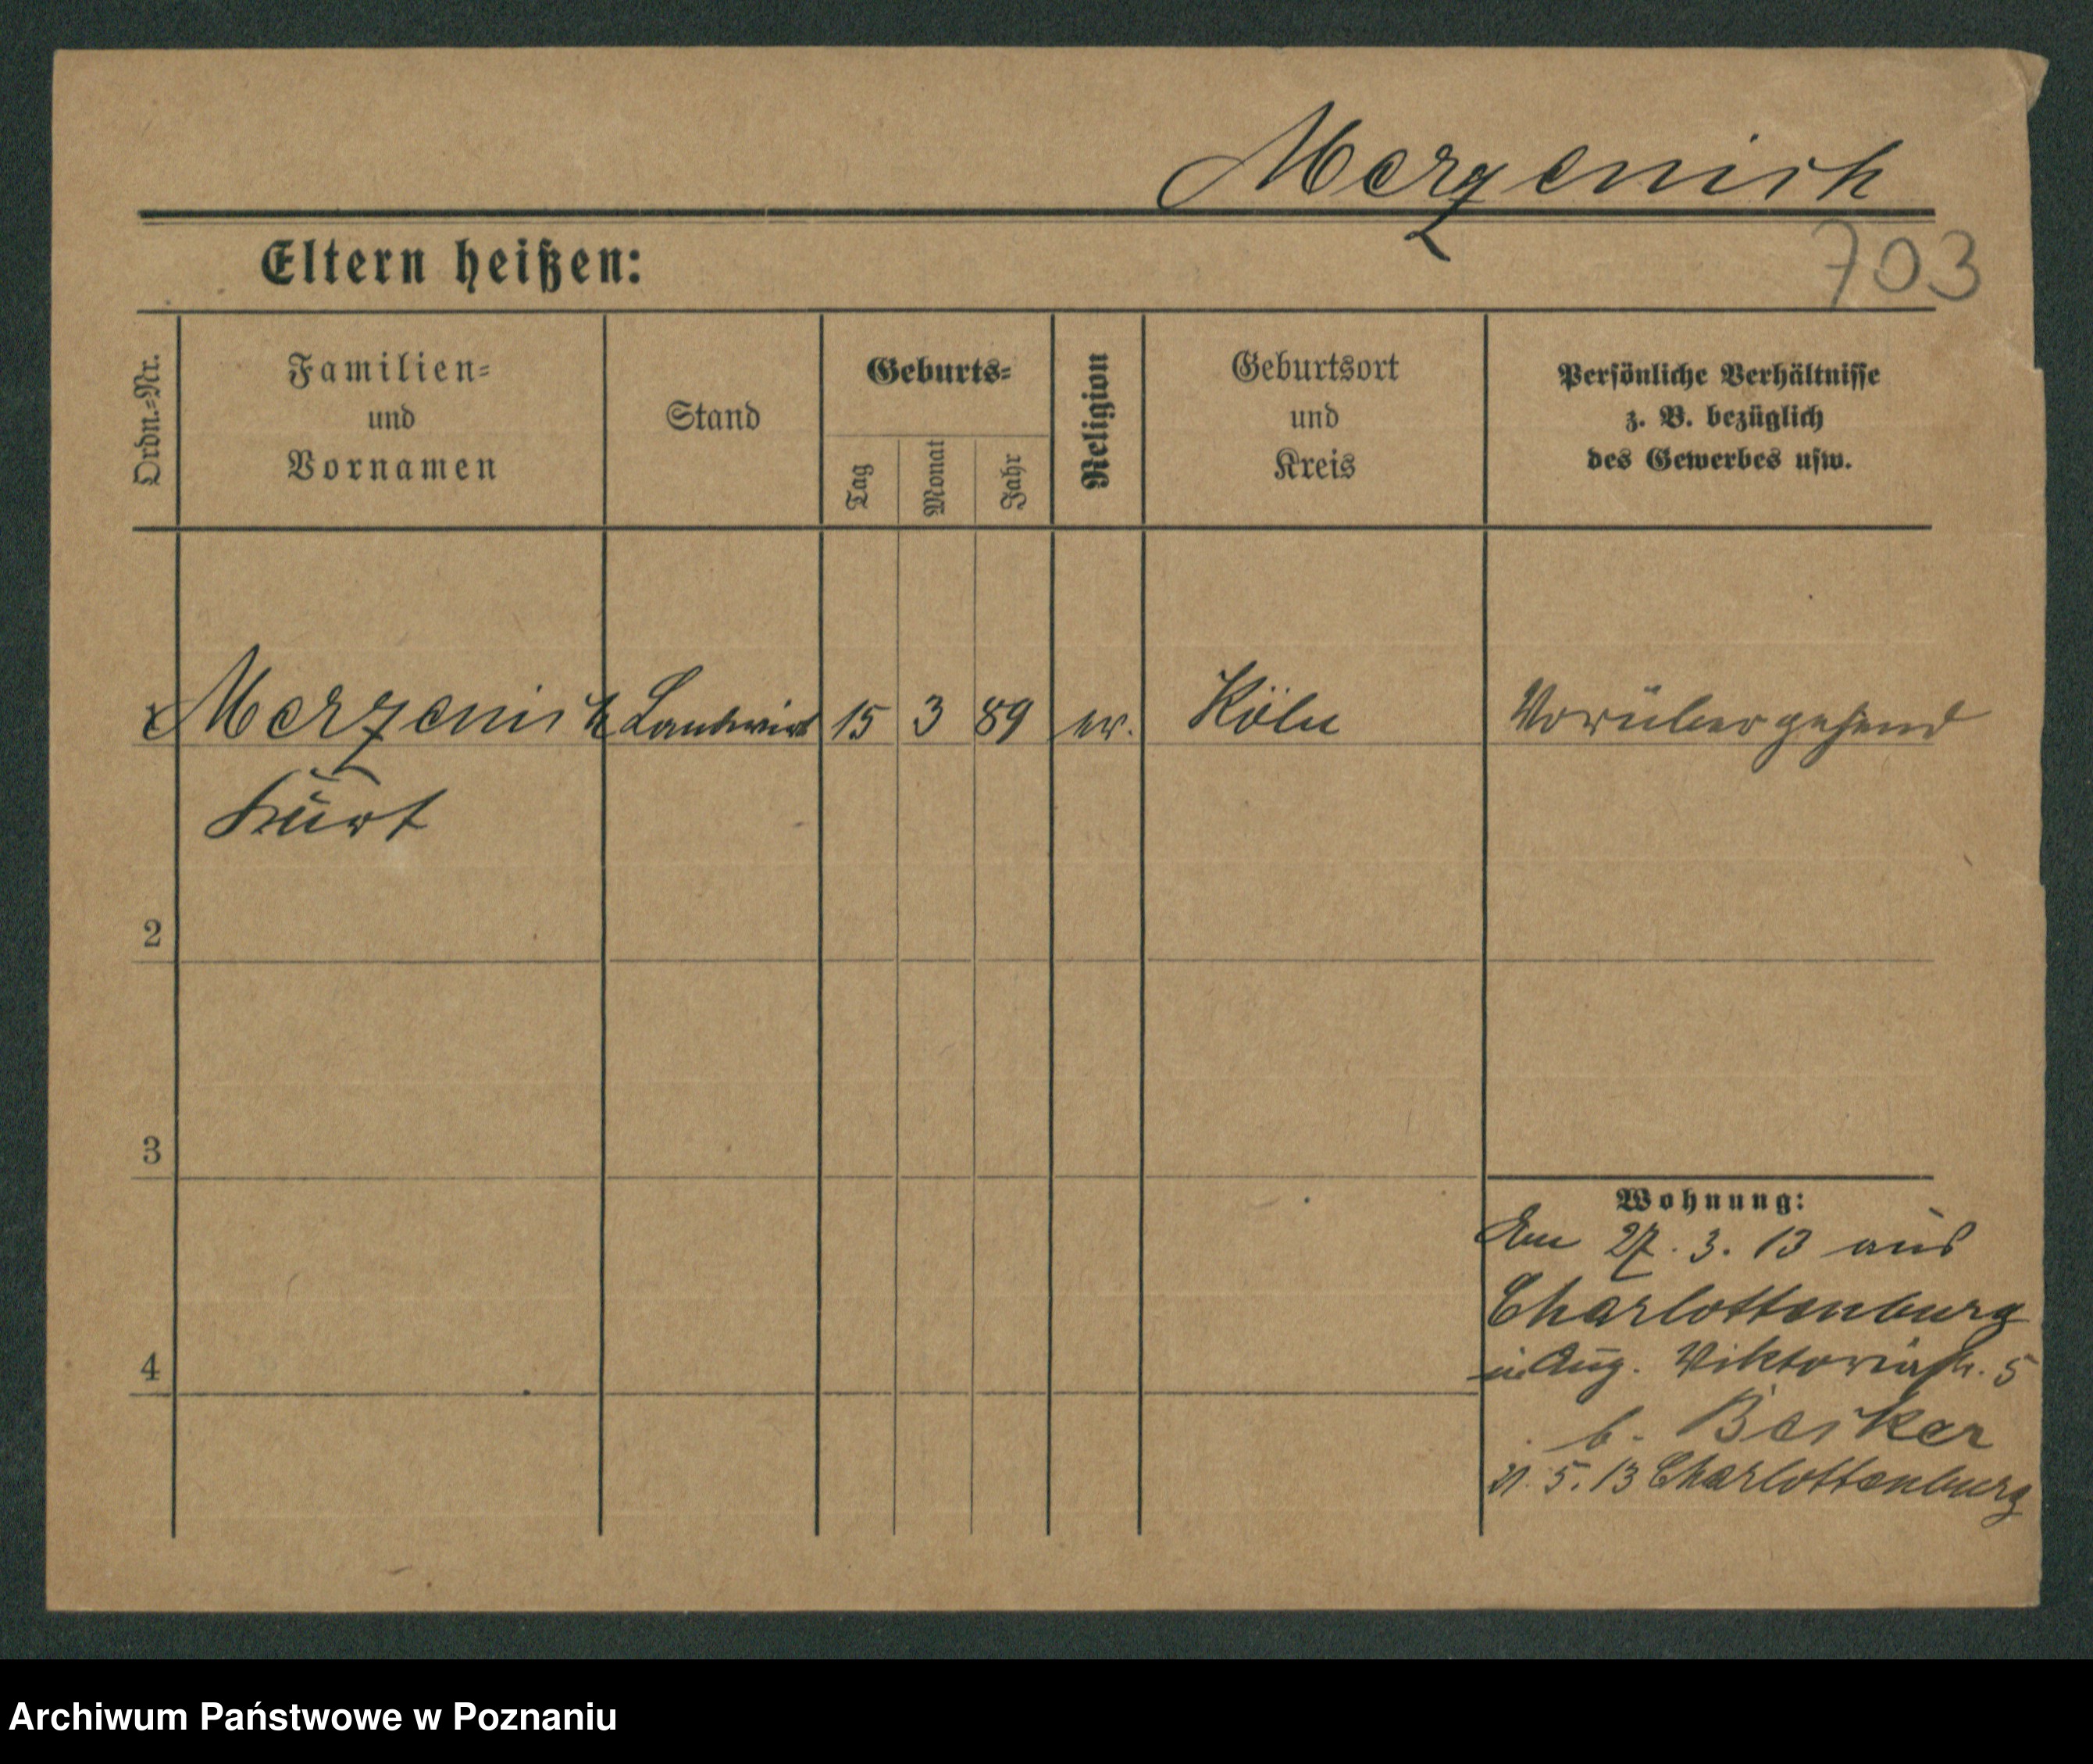 Merzenich
703
Eltern heißen:
Ordn.=Nr.
Familien=
und
Vornamen
Stand
Geburts=
Tag
Monat
Jahr
Religion
Geburtsort
und
Kreis
Persönliche Verhältnisse
z. B. bezüglich
des Gewerbes usw.
1 Merzenich Landwirt 15 3 89 ev. Köln Vorübergehend
Kurt
2
3
4
Wohnung:
Am 27. 3. 13 aus
Charlottenburg
in Aug. Viktoriastr. 5
b. Becker
21. 5. 13 Charlottenburg
Archiwum Państwowe w Poznaniu